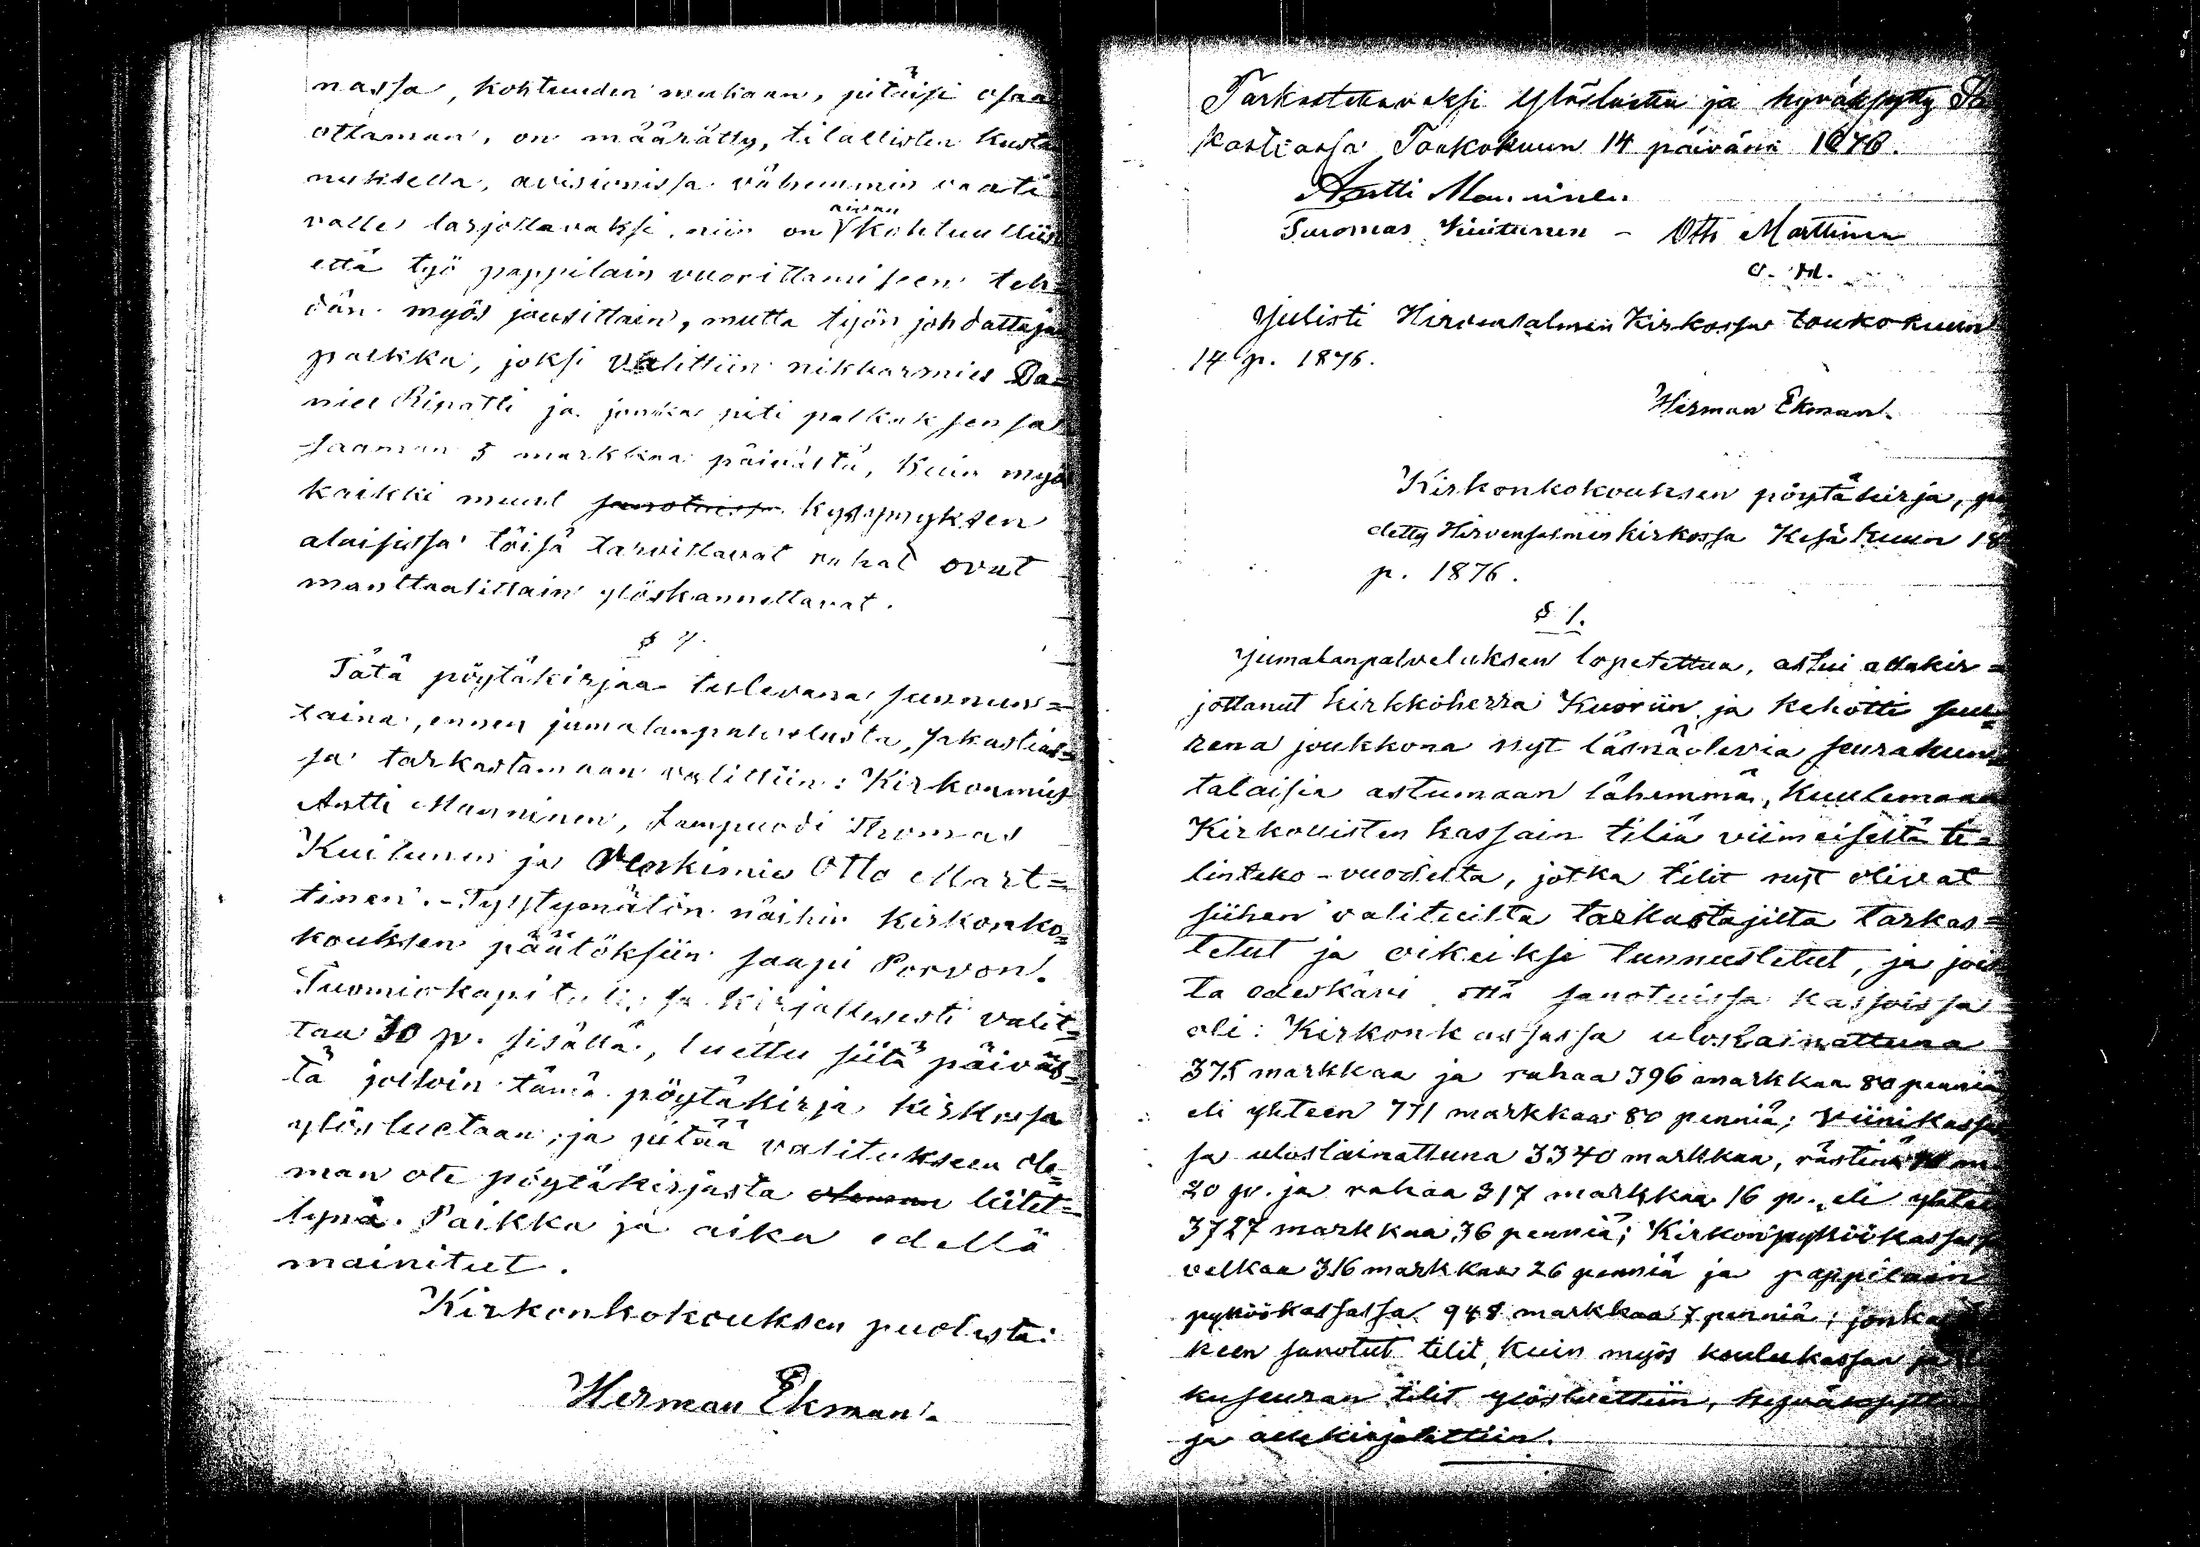 nassa, kohtuuden mukaan, pitäisi osaa
ottaman, on määrätty, tilallisten kusta
nuksella, avisionissa vähemmin vaati
valle tarjottavaksi, niin on aivan kohtuullis
että työ pappilain vuorittamiseen teh=
dän myös jousittain, mutta työn johdattaja
palkka, joksi valittiin nikkarmies Da=
niel Ripatti ja jonka piti palkaksensa
saaman 5 markkaa päivästä, kuin myö
kaikki muut sanotuissa kysymyksen
alaisissa töisä tarvittavat rahat ovat
manttaalittain ylöskannettavat.
§ 7.
Tätä pöytäkirjaa tulevana sunnun=
taina, ennen jumalanpalvelusta, sakastias=
sa tarkastamaan valittiin: Kirkonmies
Antti Manninen, Lampuodi Thomas
Kuitunen ja Merkimies Otto Mart=
tinen. - Tyytymätön näihin kirkonko=
kouksen päätöksiin saapi Porvon
Tuomiokapitulissa kirjallisesti valit=
taa 30 p. sisällä, luettu siitä päiväs=
tä jolloin tämä pöytäkirja kirkossa
ylösluetaan, ja pitää valitukseen ole=
man ote pöytäkirjasta oleman liitet=
tynä. Paikka ja aika edellä
mainitut.
Kirkonkokouksen puolesta:
Herman Ekman.
Tarkastettavaksi ylösluettu ja hyväksytty Sa
kastiassa Toukokuun 14 päivänä 1876.
Antti Manninen
Tuomas Kuitunen - Otto Marttinen
o. m.
Julisti Hirvensalmen Kirkossa toukokuun
14 p. 1876.
Herman Ekman.
Kirkonkokouksen pöytäkirja, pi
detty Hirvensalmen kirkossa Kesäkuun 18
p. 1876.
§ 1.
Jumalanpalveluksen lopetettua, astui allakir=
jottanut kirkkoherra Kuoriin ja kehotti suu=
rena joukkona nyt läsnäolevia seurakun
talaisia astumaan lähemmä, kuulemaan
Kirkollisten kassain tiliä viimeiseltä ti=
linteko-vuodelta, jotka tilit nyt olivat
siihen valituilta tarkastajilta tarkas=
tetut ja oikeiksi tunnustetut, ja jois
ta edeskävi että sanotuissa kassoissa
oli: Kirkonkassassa uloslainattuna
375 markkaa ja rahaa 396 markkaa 80 penniä
eli yhteen 771 markkaa 80 penniä; viinikassa
sa uloslainattuna 3340 markkaa, rästinä m.
20 p. ja rahaa 317 markkaa 16 p., eli yhteen
3727 markkaa 36 penniä; Kirkonpyhöökassassa
velkaa 316 markkaa 26 penniä ja pappilain
pyhöökassassa 948 markkaa 7 penniä; jonka
keen sanotut tilit, kuin myös koulukassan ja
kuseuran tilit ylösluettiin, hyväksyttiin
ja allekirjoitettiin.